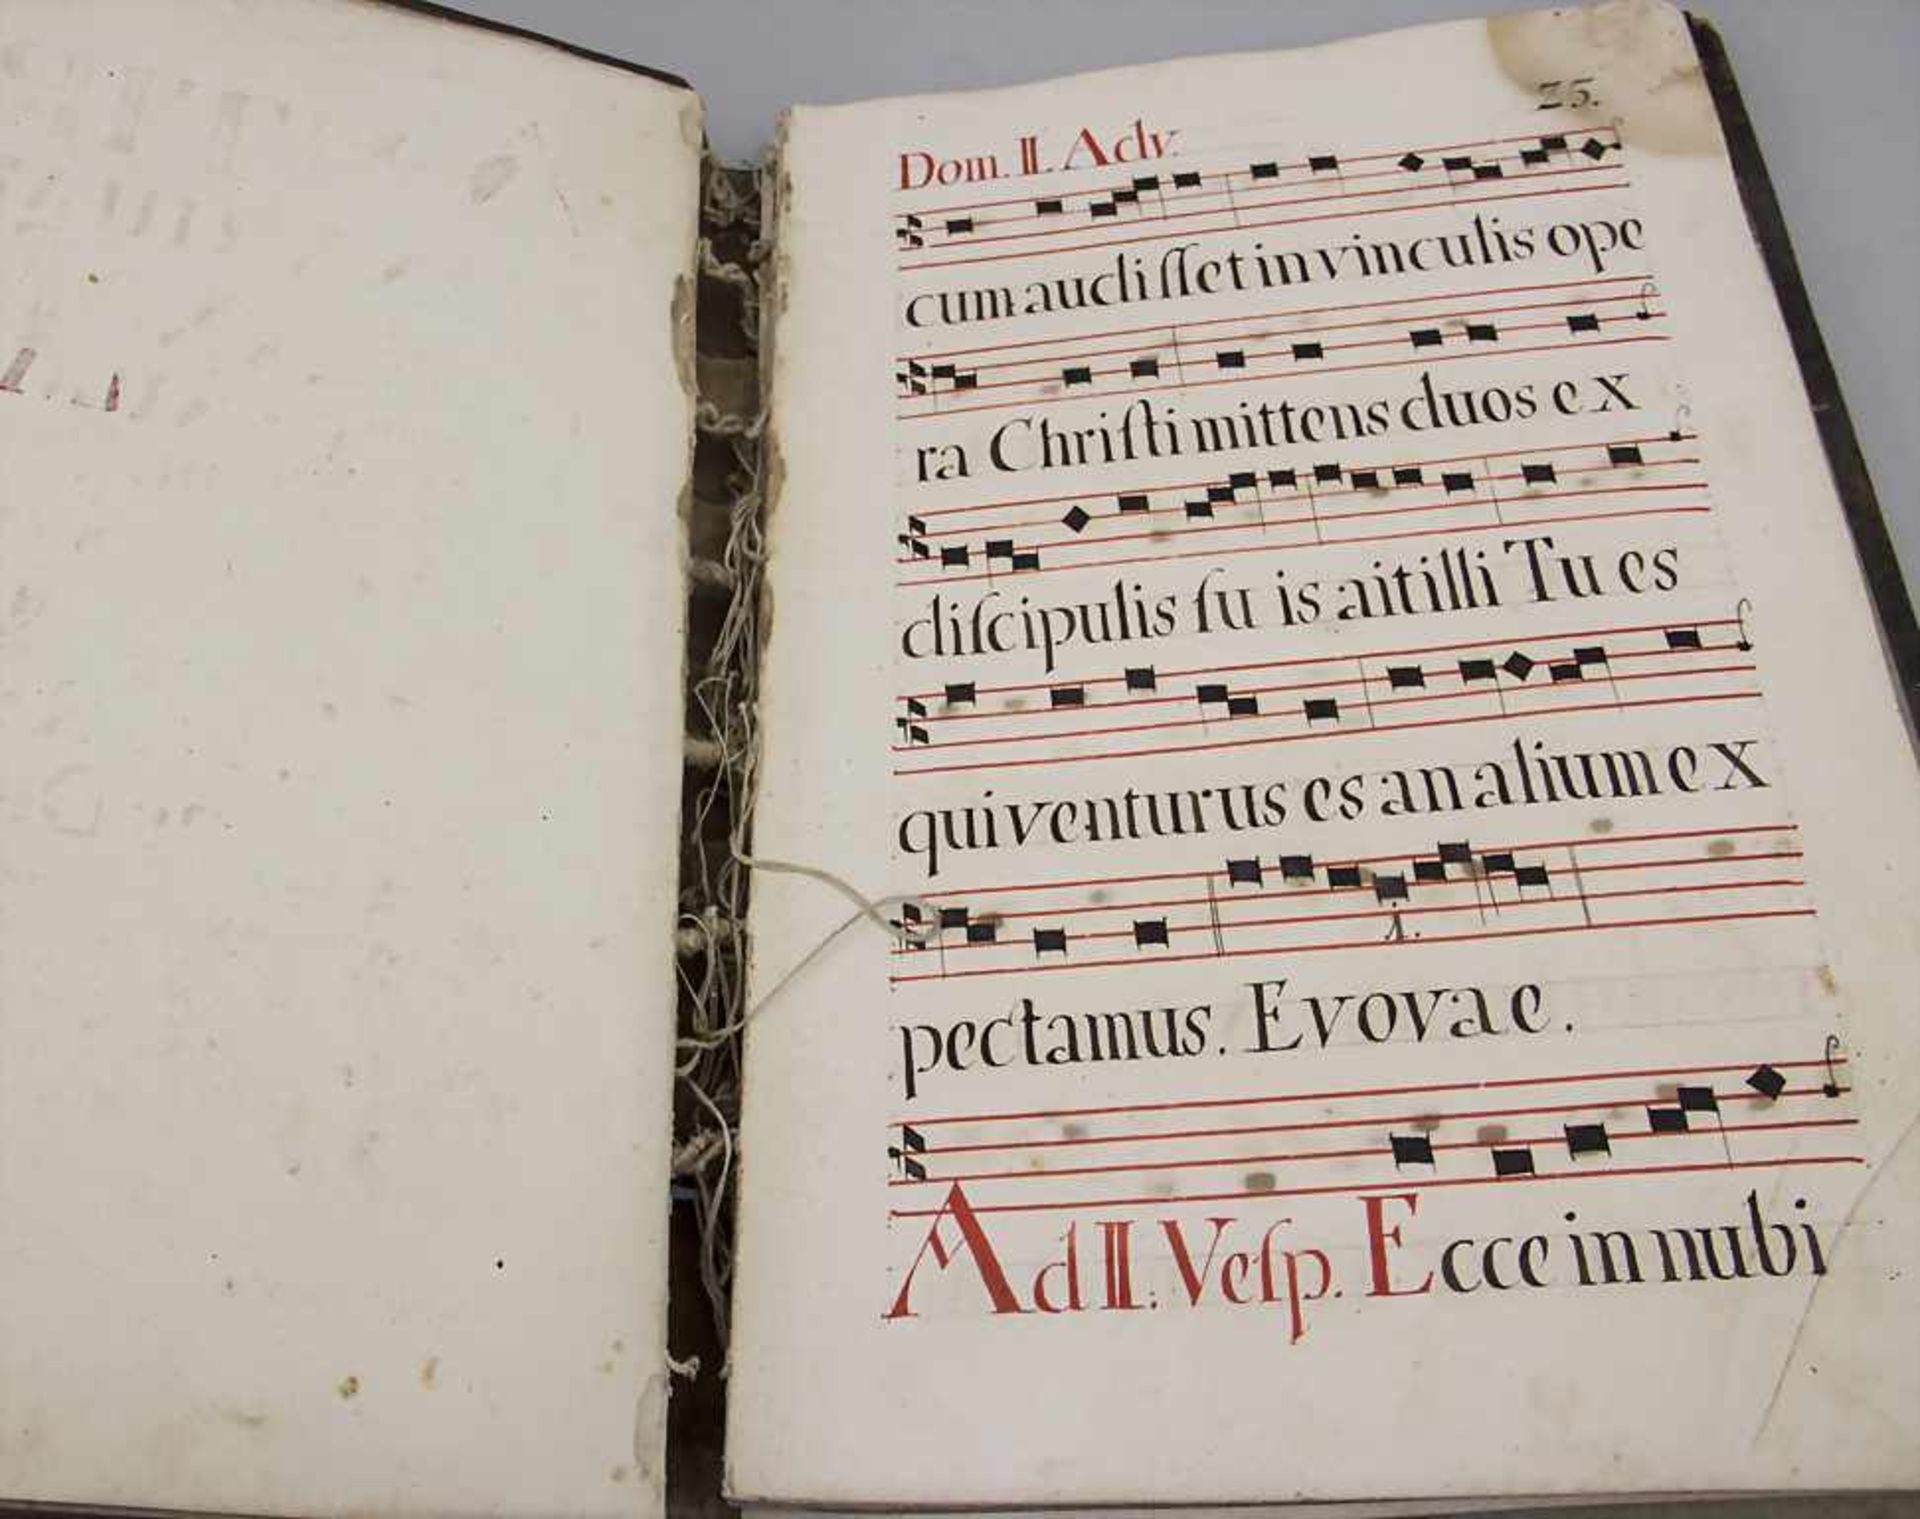 25.
Dom. II. Adv.
cum audiſſet in vinculis ope
ra Chriſti mittens duos ex
diſcipulis ſu is ait illi Tu es
qui venturus es an alium ex
1.
pectamus. Evovae.
Ad II. Veſp. Ecce in nubi